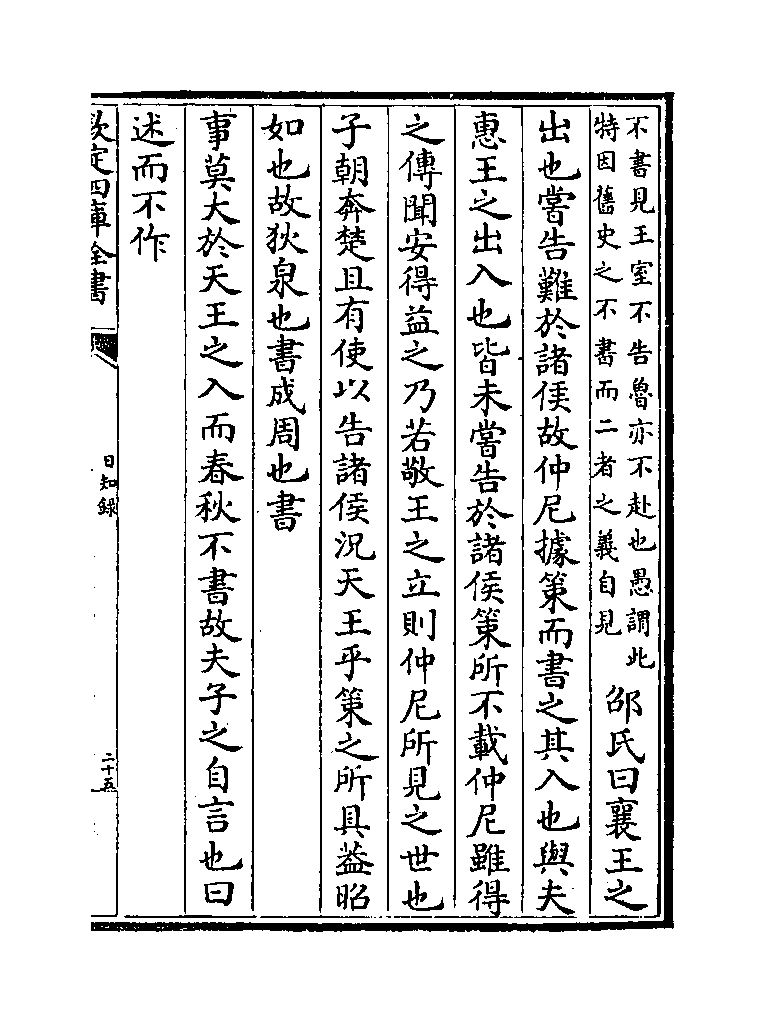 不書見王室不告魯亦不赴也愚謂此
特因舊史之不書而二者之義自見
邵氏曰襄王之
出也嘗告難於諸侯故仲尼據策而書之其入也與夫
惠王之出入也皆未嘗告於諸侯策所不載仲尼雖得
之傳聞安得益之乃若敬王之立則仲尼所見之世也
子朝奔楚且有使以告諸侯況天王乎策之所具蓋昭
如也故狄泉也書成周也書
事莫大於天王之入而春秋不書故夫子之自言也曰
述而不作
欽定四庫全書
日知錄
二十五